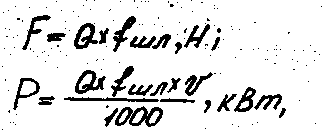 F = Q × fшл, H;
P = Q × fшл × v / 1000, кВт,